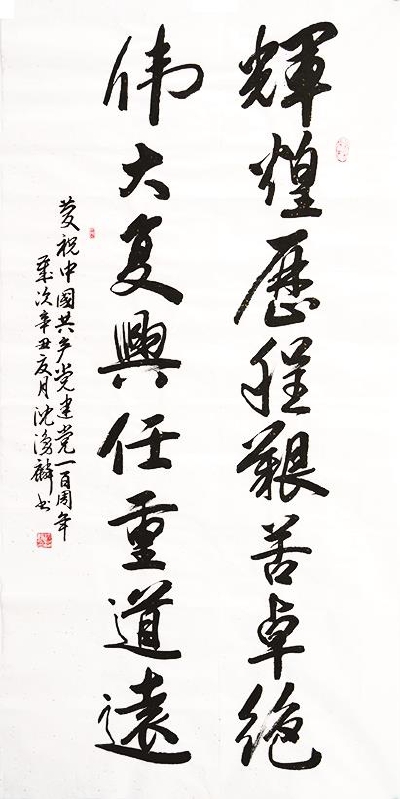 輝煌歷程艱苦卓絶
伟大复興任重道遠
慶祝中國共产党建党一百周年
歲次辛丑夏月沈湧麟书